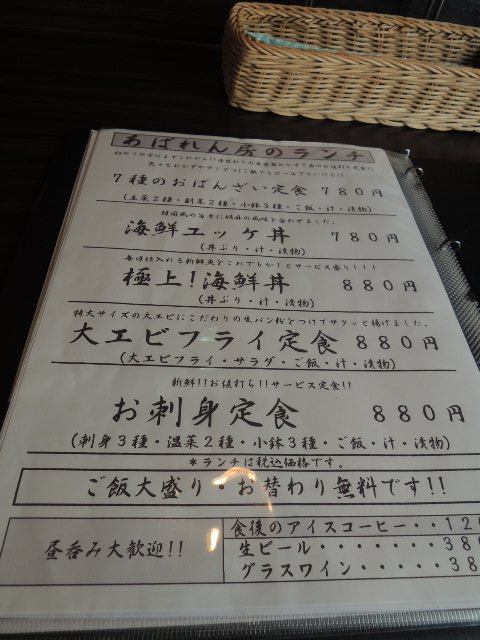 あばれん房のランチ
7種のおばんざい定食 780円
(主菜2種・副菜2種・小鉢3種・ご飯・汁・漬物)
韓国風の旨辛に胡麻の風味を合わせました。
海鮮ユッケ丼 780円
(丼ぶり・汁・漬物)
毎日仕入れる新鮮魚をこれでもか!とサービス盛り!!!
極上!海鮮丼 880円
(丼ぶり・汁・漬物)
特大サイズの大エビにこだわりの生パン粉をつけてサクッと揚げました。
大エビフライ定食 880円
(大エビフライ・サラダ・ご飯・汁・漬物)
新鮮!!お値打ち!!サービス定食!!
お刺身定食 880円
(刺身3種・温菜2種・小鉢3種・ご飯・汁・漬物)
*ランチは税込価格です。
ご飯大盛り・お替わり無料です!!
昼呑み大歓迎!!
食後のアイスコーヒー・・12
生ビール・・・・・・・38
グラスワイン・・・・・・38